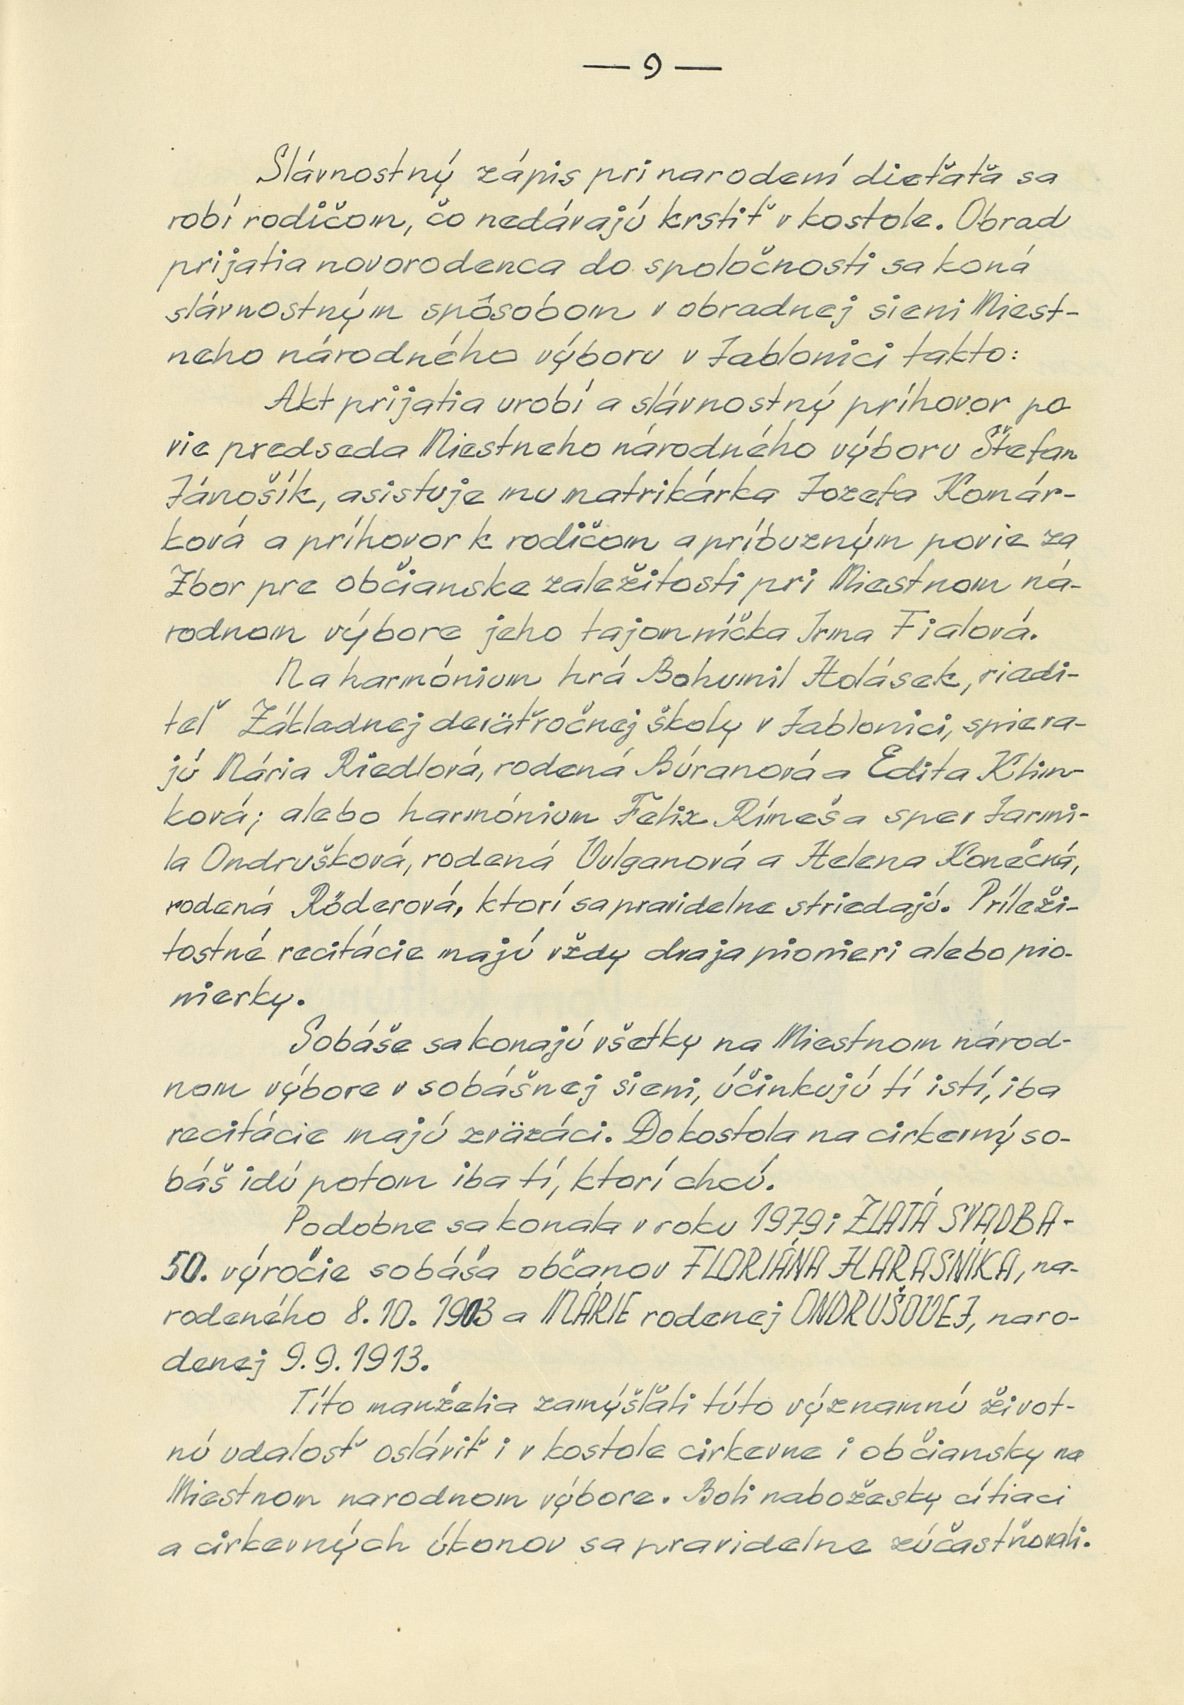 — 9 —
Slávnostný zápis pri narodení dieťaťa sa
robí rodičom, čo nedávajú krstiť v kostole. Obrad
prijatia novorodenca do spoločnosti sa koná
slávnostným spôsobom v obradnej sieni Miest-
neho národného výboru v Jablonici takto:
Akt prijatia urobí a slávnostný príhovor po
vie predseda Miestneho národného výboru Štefan
Jánošík, asistuje mu matrikárka Jozefa Komár-
ková a príhovor k rodičom a príbuzným povie za
Zbor pre občianske zaležitosti pri Miestnom ná-
rodnom výbore jeho tajomníčka Irma Fialová.
Na harmónium hrá Bohumil Holásek, riadi-
teľ Základnej deväťročnej školy v Jablonici, spieva-
jú Mária Riedlová, rodená Búranová a Edita Klim-
ková; alebo harmónium Felix Rímeš a spev Jarmi-
la Ondrušková, rodená Vulganová a Helena Konečná,
rodená Röderová, ktorí sa pravidelne striedajú. Príleži-
tostné recitácie majú vždy dvaja pionieri alebo pio-
nierky.
Sobáše sa konajú všetky na Miestnom národ-
nom výbore v sobášnej sieni, účinkujú tí istí, iba
recitácie majú zväzáci. Do kostola na cirkevný so-
báš idú potom iba tí, ktorí chcú.
Podobne sa konala v roku 1979 i ZLATÁ SVADBA -
50. výročie sobáša občanov FLORIÁNA HARASNÍKA, na-
rodeného 8. 10. 1903 a MÁRIE rodenej ONDRUŠOVEJ, naro-
denej 9. 9. 1913.
Títo manželia zamýšľali túto významnú život-
nú udalosť osláviť i v kostole cirkevne i občiansky na
Miestnom narodnom výbore. Boli nabožesky cítiaci
a cirkevných úkonov sa pravidelne zúčastňovali.